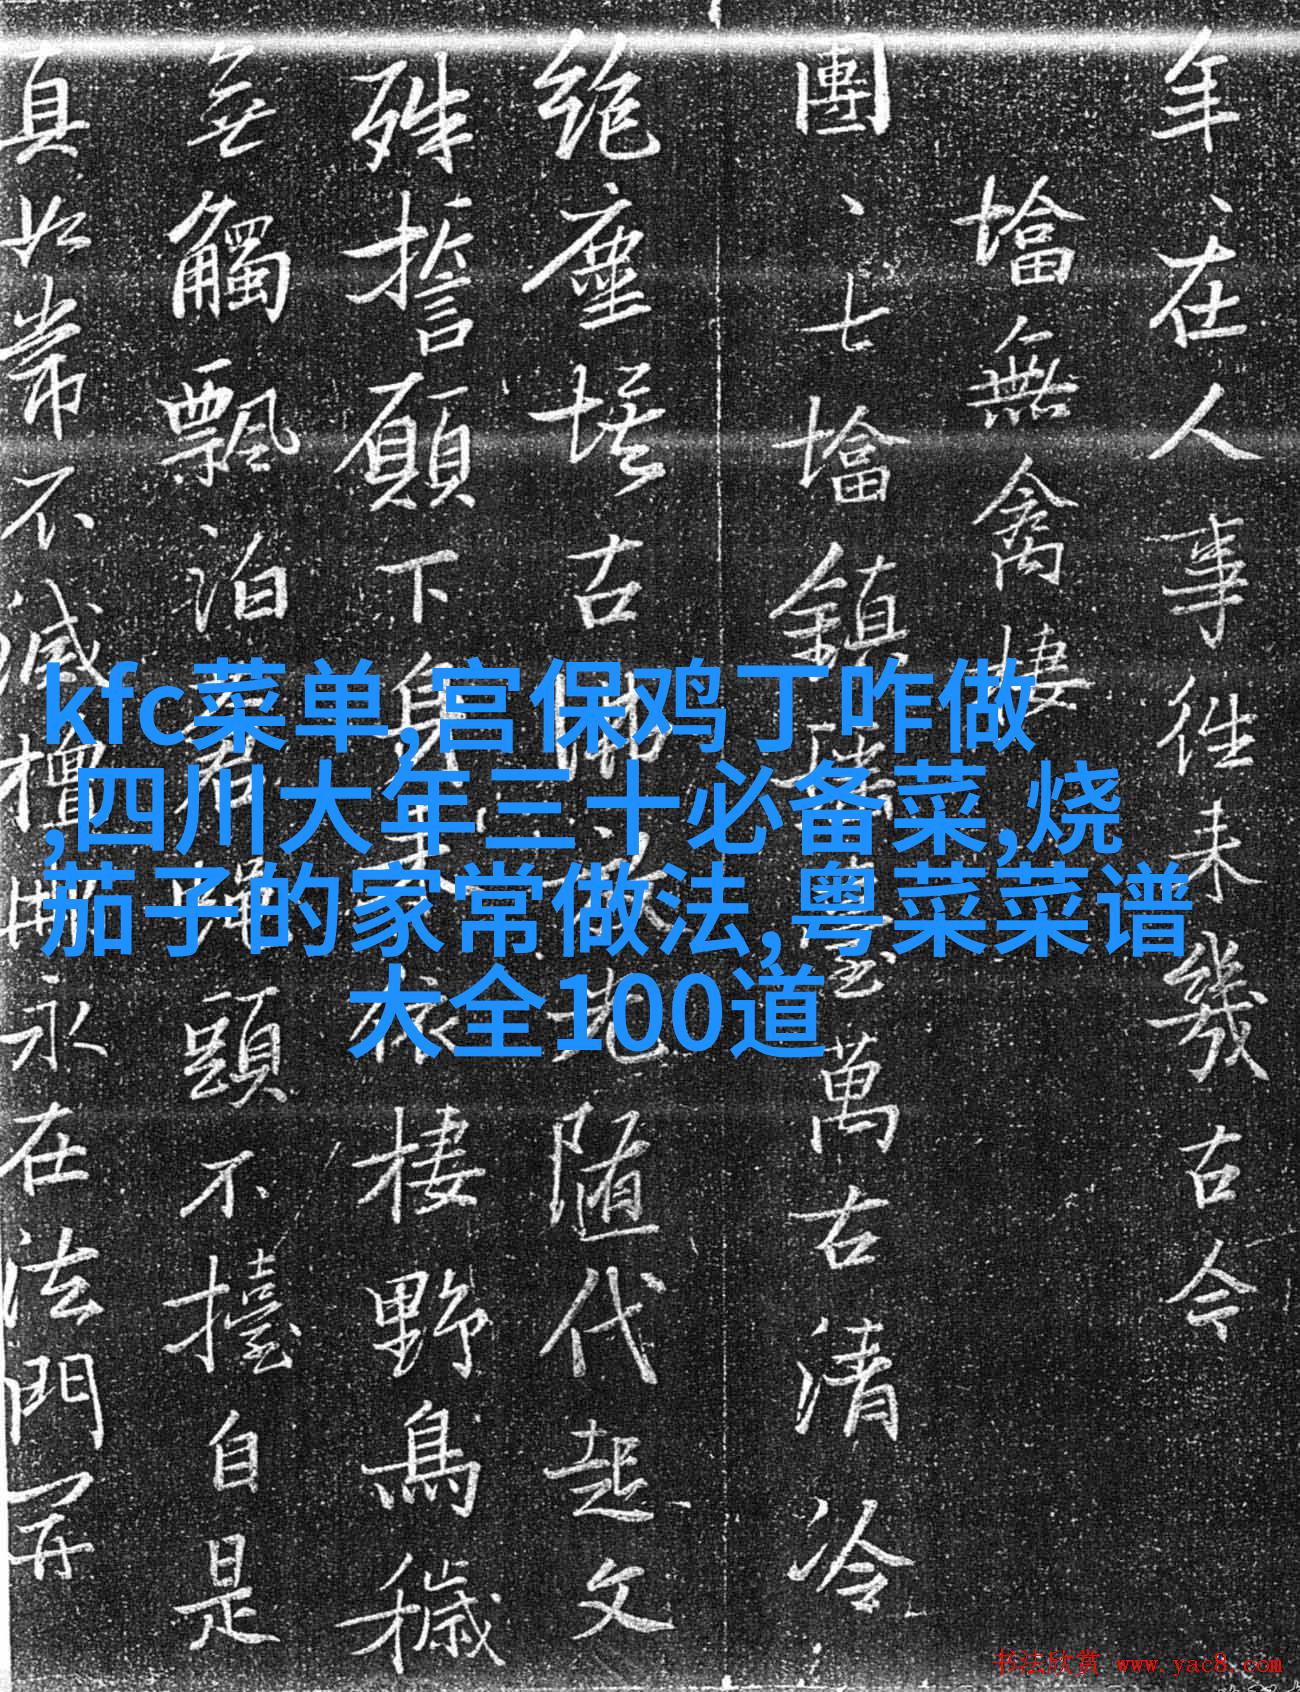 年、在人事往未幾古今
墖無禽棲
團、七墖鎮
萬古清冷
絶塵埃古
隨代起文
殊誓願下身
棲野鳥穢
無觸飄泊君
頭不擡自是
真如常不滅檀
永在法門开
kfc菜单,宫保鸡丁咋做
,四川大年三十必备菜,烧
茄子的家常做法,粤菜菜谱
大全100道
书法欣赏 www.yac8.com